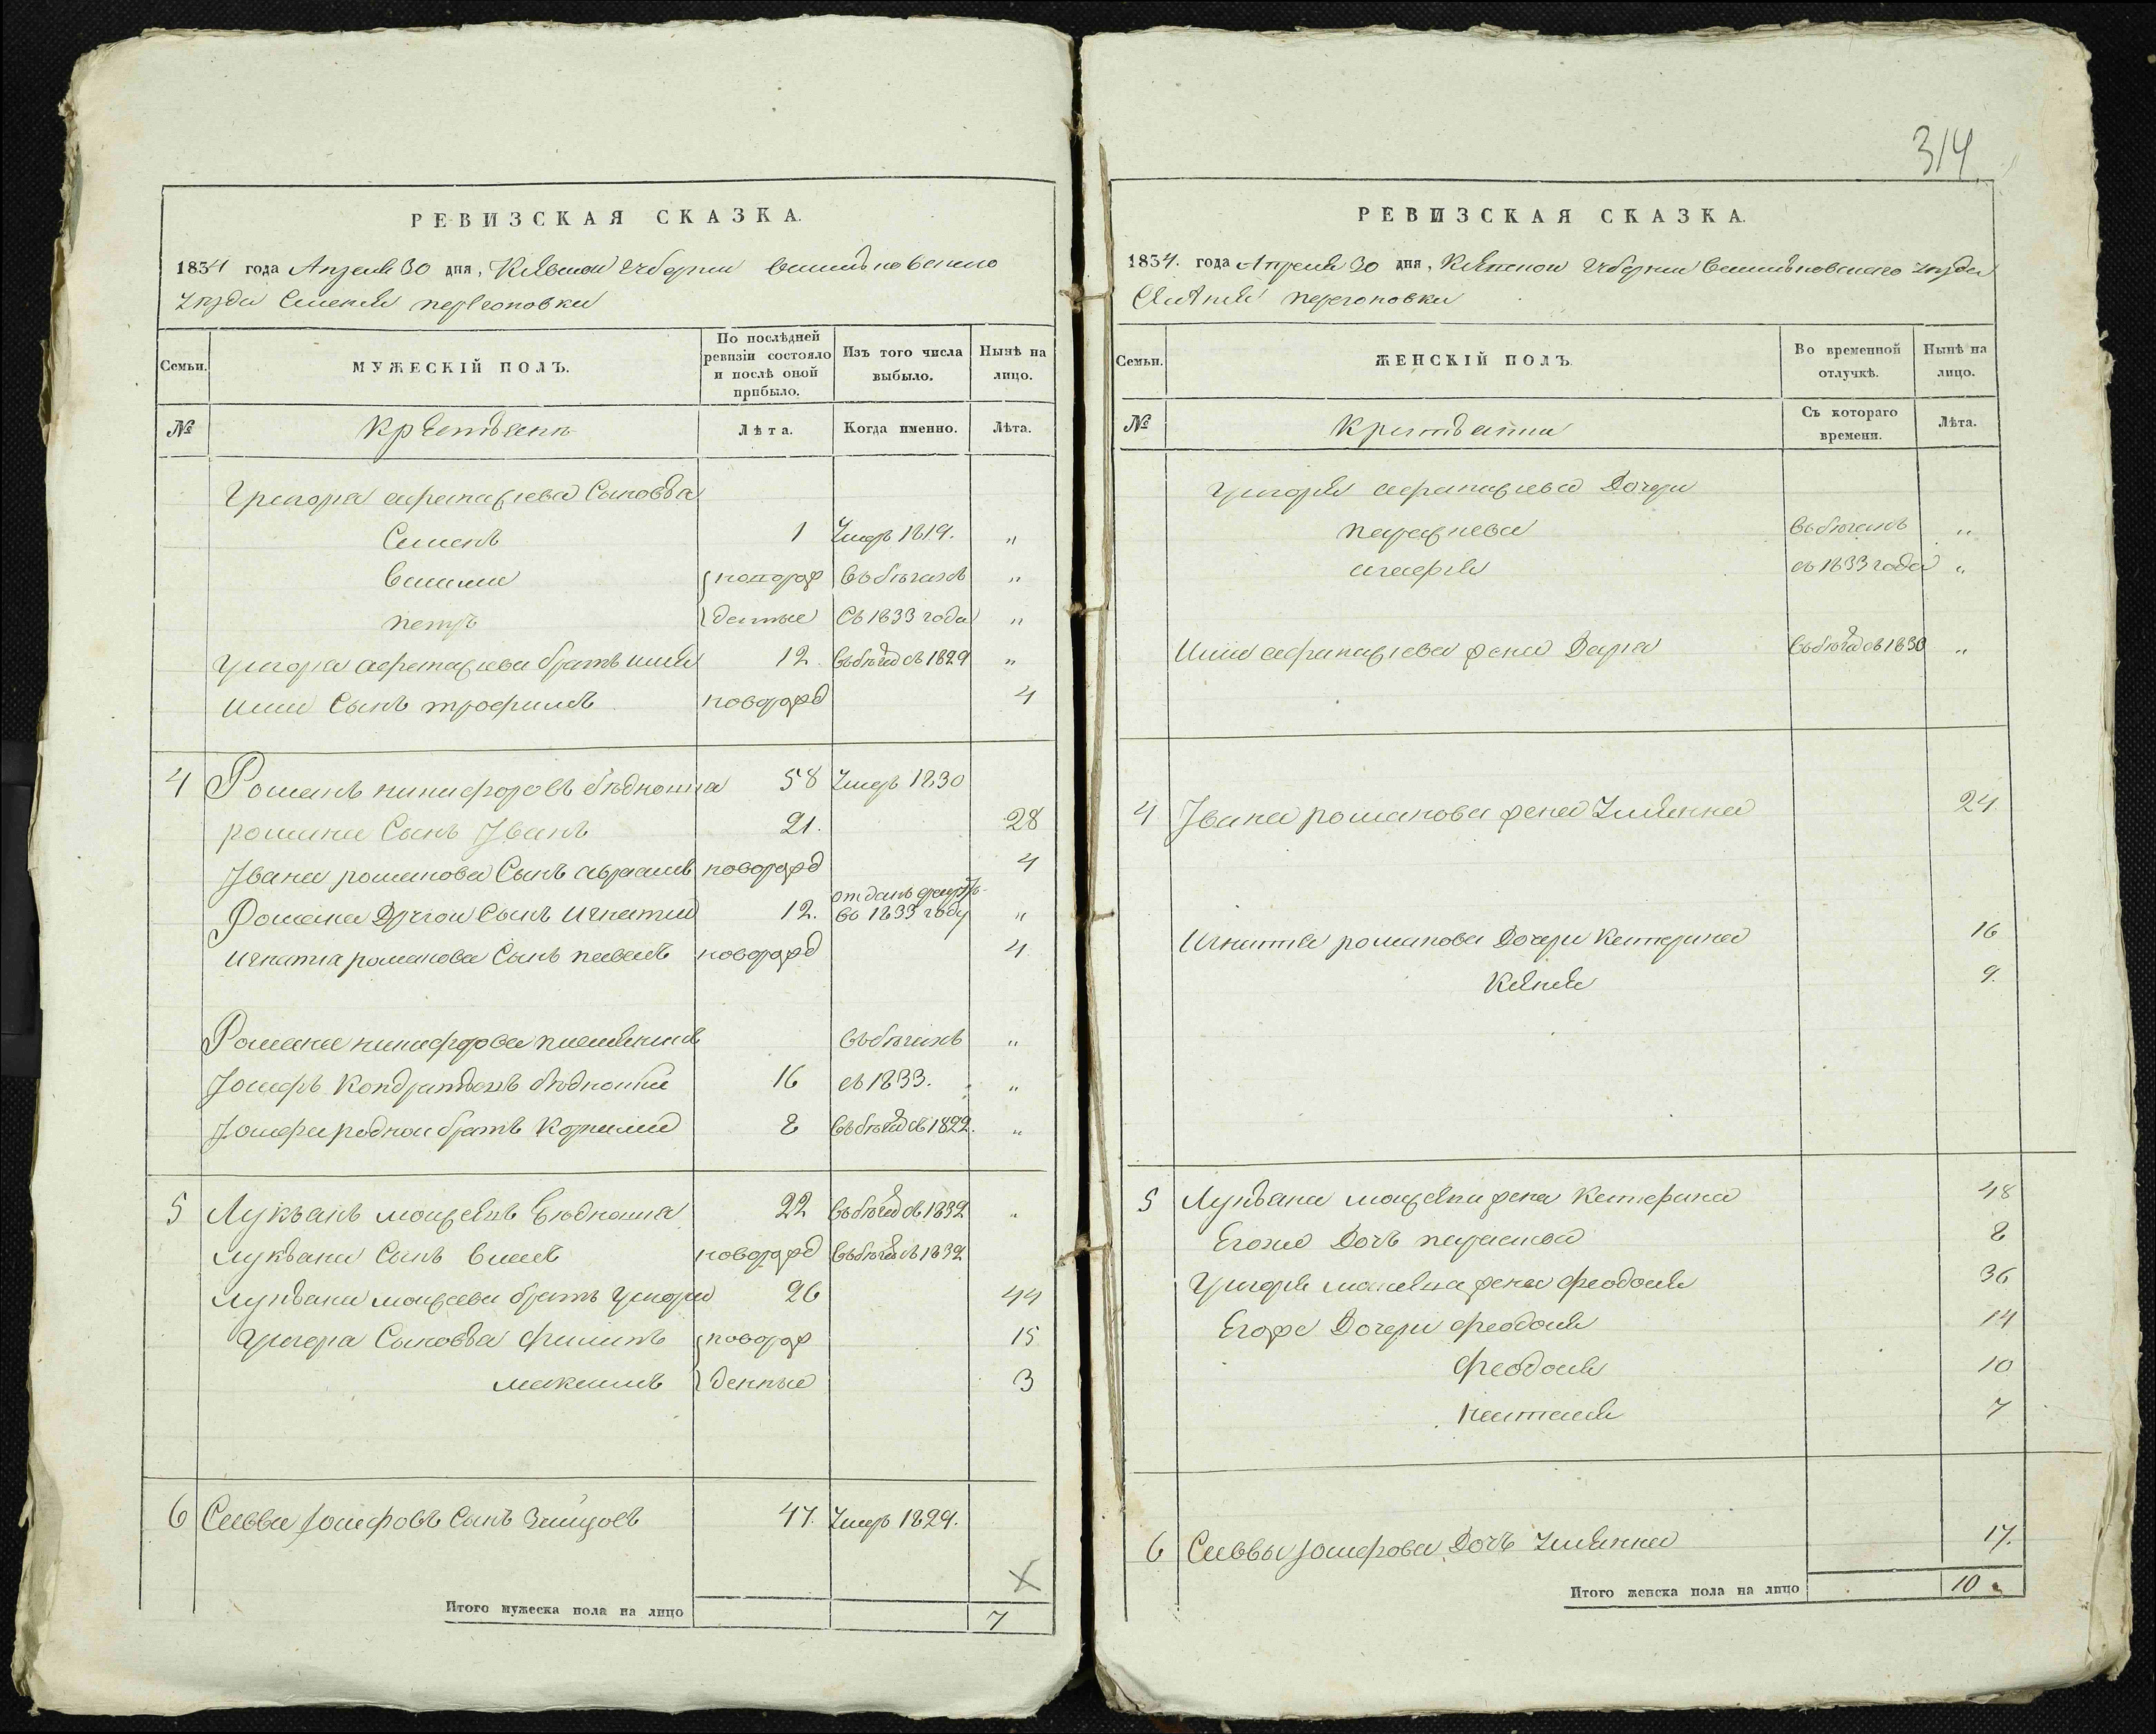 314.
РЕВИЗСКАЯ СКАЗКА.
1834 года Апреля 30 дня, Киевской губернии Васильковского
уезда Селения перегоновки
Семьи. МУЖЕСКІЙ ПОЛЪ. По послѣдней ревизіи состояло и послѣ оной прибыло. Изъ того числа выбыло. Нынѣ на лицо.
№ Крестьяне Лѣта. Когда именно. Лѣта.
Григора Сыновья
Семенъ 1 Умеръ 1819. "
Василь новорож въ бегахъ "
петръ денные Съ 1833 года "
Григора братъ 12. въ бегахъ съ 1829 "
Сынъ трофимъ новорожд 4
4 Романъ никифоровъ бѣдноша 58 Умеръ 1830
романа Сынъ Іванъ 21. 28
Івана романова Сынъ авраамъ новорожд 4
Романа Другои Сынъ игнатий 12. отданъ врекруты во 1833 году "
игнатиа романова Сынъ павелъ новорожд 4
Романа никифорова племянникъ въ бегахъ "
Іосифъ Кондратьевъ бѣдноша 16 съ 1833. "
Іосифа роднои братъ Корнилий 8 въ бегахъ съ 1822. "
5 Лукъанъ моисѣевъ бѣдноша 22 въ бегахъ съ 1832 "
лукьана Сынъ новорожд въ бегахъ съ 1832
лукьана моисеева братъ григорий 26 44
Григора Сыновья филипъ новорож 15
максимъ денные 3
6 Савва Іосифовъ Сынъ 47. Умеръ 1829.
Итого мужеска пола на лицо 7
РЕВИЗСКАЯ СКАЗКА.
1834. года Апреля 30 дня, Киевской губернии Васильковского уезда
Селения перегоновки
Семьи. ЖЕНСКІЙ ПОЛЪ. Во временной отлучкѣ. Нынѣ на лицо.
№ Крестьянки Съ котораго времени. Лѣта.
григория Дочери
въ бегахъ "
съ 1833 года "
жена Дарья въ бегахъ съ 1830 "
4 Івана романова жена Ульянна 24
Игнатия романова Дочери Катерина 16
9.
5 Лукьана моисеева жена Катерина 48
Егоже Дочь параскева 8
Григория жена феодосия 36
Егоже Дочери феодосия 14
феодосия 10
наталия 7
6 Саввы Іосифова Дочь Ульянна 17.
Итого женска пола на лицо 10